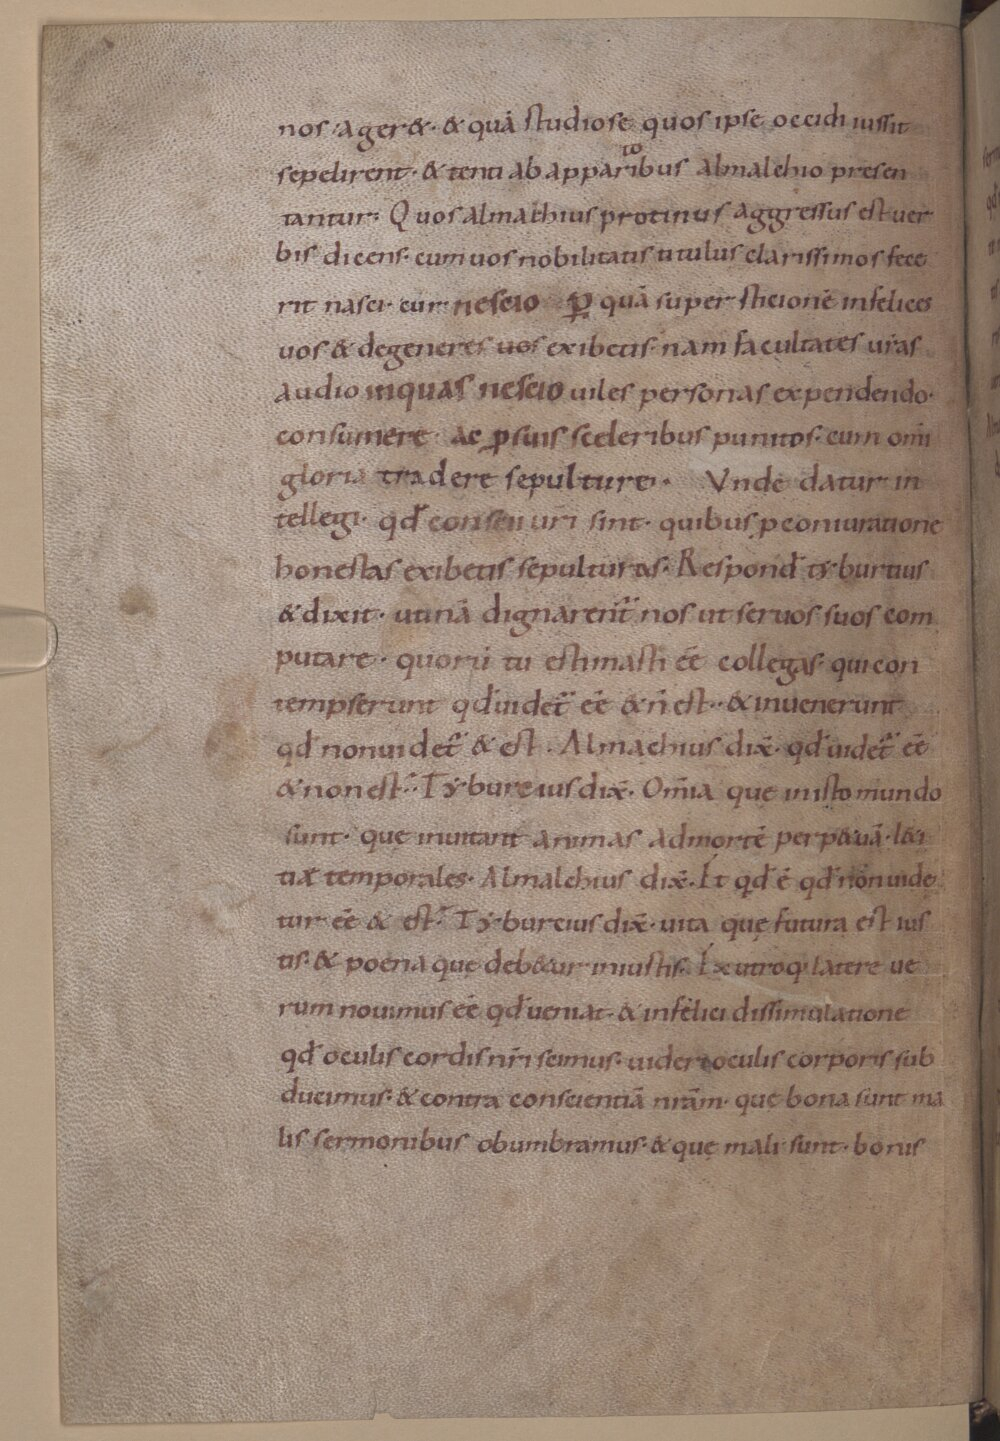 nos· ager&· & quā studiose quos ipse occidi iussit
sepelirent· & tenti ab apparitoribus almalchio presen
tantur· Quos almachius protinus aggressus est uer
bis dicens· cum uos nobilitatis titulus clarissimos fece
rit nasci· cur nescio ꝓ quā superstitionē infelices
uos & degeneres uos exibetis· nam facultates urās
audio inquas nescio uiles personas expendendo·
consumere· ac ꝓ suis sceleribus punitos· cum omī
gloria tradere sepulture· Vnde datur in
tellegi· qđ conscii urī sint· quibus p coniuratione
honestas exibetis sepulturas· Respond̄ tyburtius
& dixit· utinā dignarent̄ nos ut seruos suos com
putare· quorū tu estimasti eē collegas· qui con
tempserunt qđ uidet̄ eē & ñ est· & inuenerunt
qđ non uidet̄ & est· Almachius dix̄· qđ uidet̄ eē
& non est· Tyburcius dix̄· Om̄ia que in isto mundo
sunt· que inuitant animas ad mortē perp&uā· l&i
tiæ temporales· Almalchius dix̄· Et qđ ē qđ non uide
tur eē & est· Tyburcius dix̄· uita que futura est ius
tis· & poena que deb&ur iniustis· Ex utroq· latere ue
rum nouimus eē qđ ueniat· & infelici dissimulatione
qđ oculis cordis nrī scimus· uideri oculis corporis sub
ducimus· & contra conscientiā nrām· que bona sunt ma
lis sermonibus obumbramus· & que mali sunt· bonis